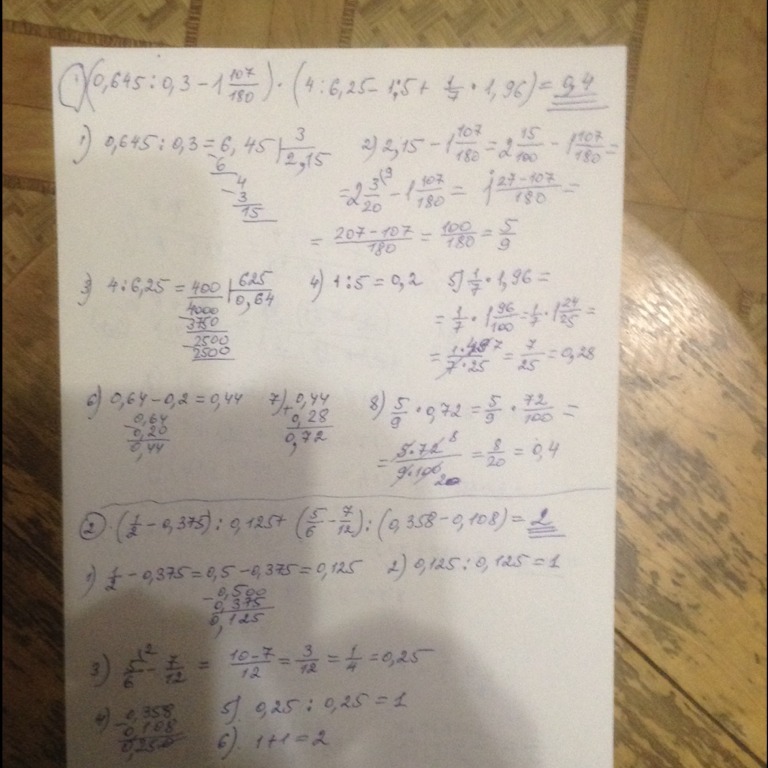 ① (0,645 : 0,3 - 1 107/180) · (4 : 6,25 - 1:5 + 1/7 · 1,96) = 0,4
1) 0,645 : 0,3 = 6,45 | 3
2,15
-6
4
-3
15
2) 2,15 - 1 107/180 = 2 15/100 - 1 107/180 =
= 2 3/20 - 1 107/180 = 1 (27-107)/180 =
= (207-107)/180 = 100/180 = 5/9
3) 4 : 6,25 = 400 | 625
0,64
4000
-3750
2500
-2500
4) 1 : 5 = 0,2
5) 1/7 · 1,96 =
= 1/7 · 1 96/100 = 1/7 · 1 24/25 =
= (1·49)/(7·25) 7 = 7/25 = 0,28
6) 0,64 - 0,2 = 0,44
-0,64
0,20
0,44
7) 0,44
+0,28
0,72
8) 5/9 · 0,72 = 5/9 · 72/100 =
= (5·72)/(9·100) 8 20 = 8/20 = 0,4
② (1/2 - 0,375) : 0,125 + (5/6 - 7/12) : (0,358 - 0,108) = 2
1) 1/2 - 0,375 = 0,5 - 0,375 = 0,125
-0,500
0,375
0,125
2) 0,125 : 0,125 = 1
3) 5/6 - 7/12 = (10-7)/12 = 3/12 = 1/4 = 0,25
4) -0,358
0,108
0,250
5) 0,25 : 0,25 = 1
6) 1+1 = 2